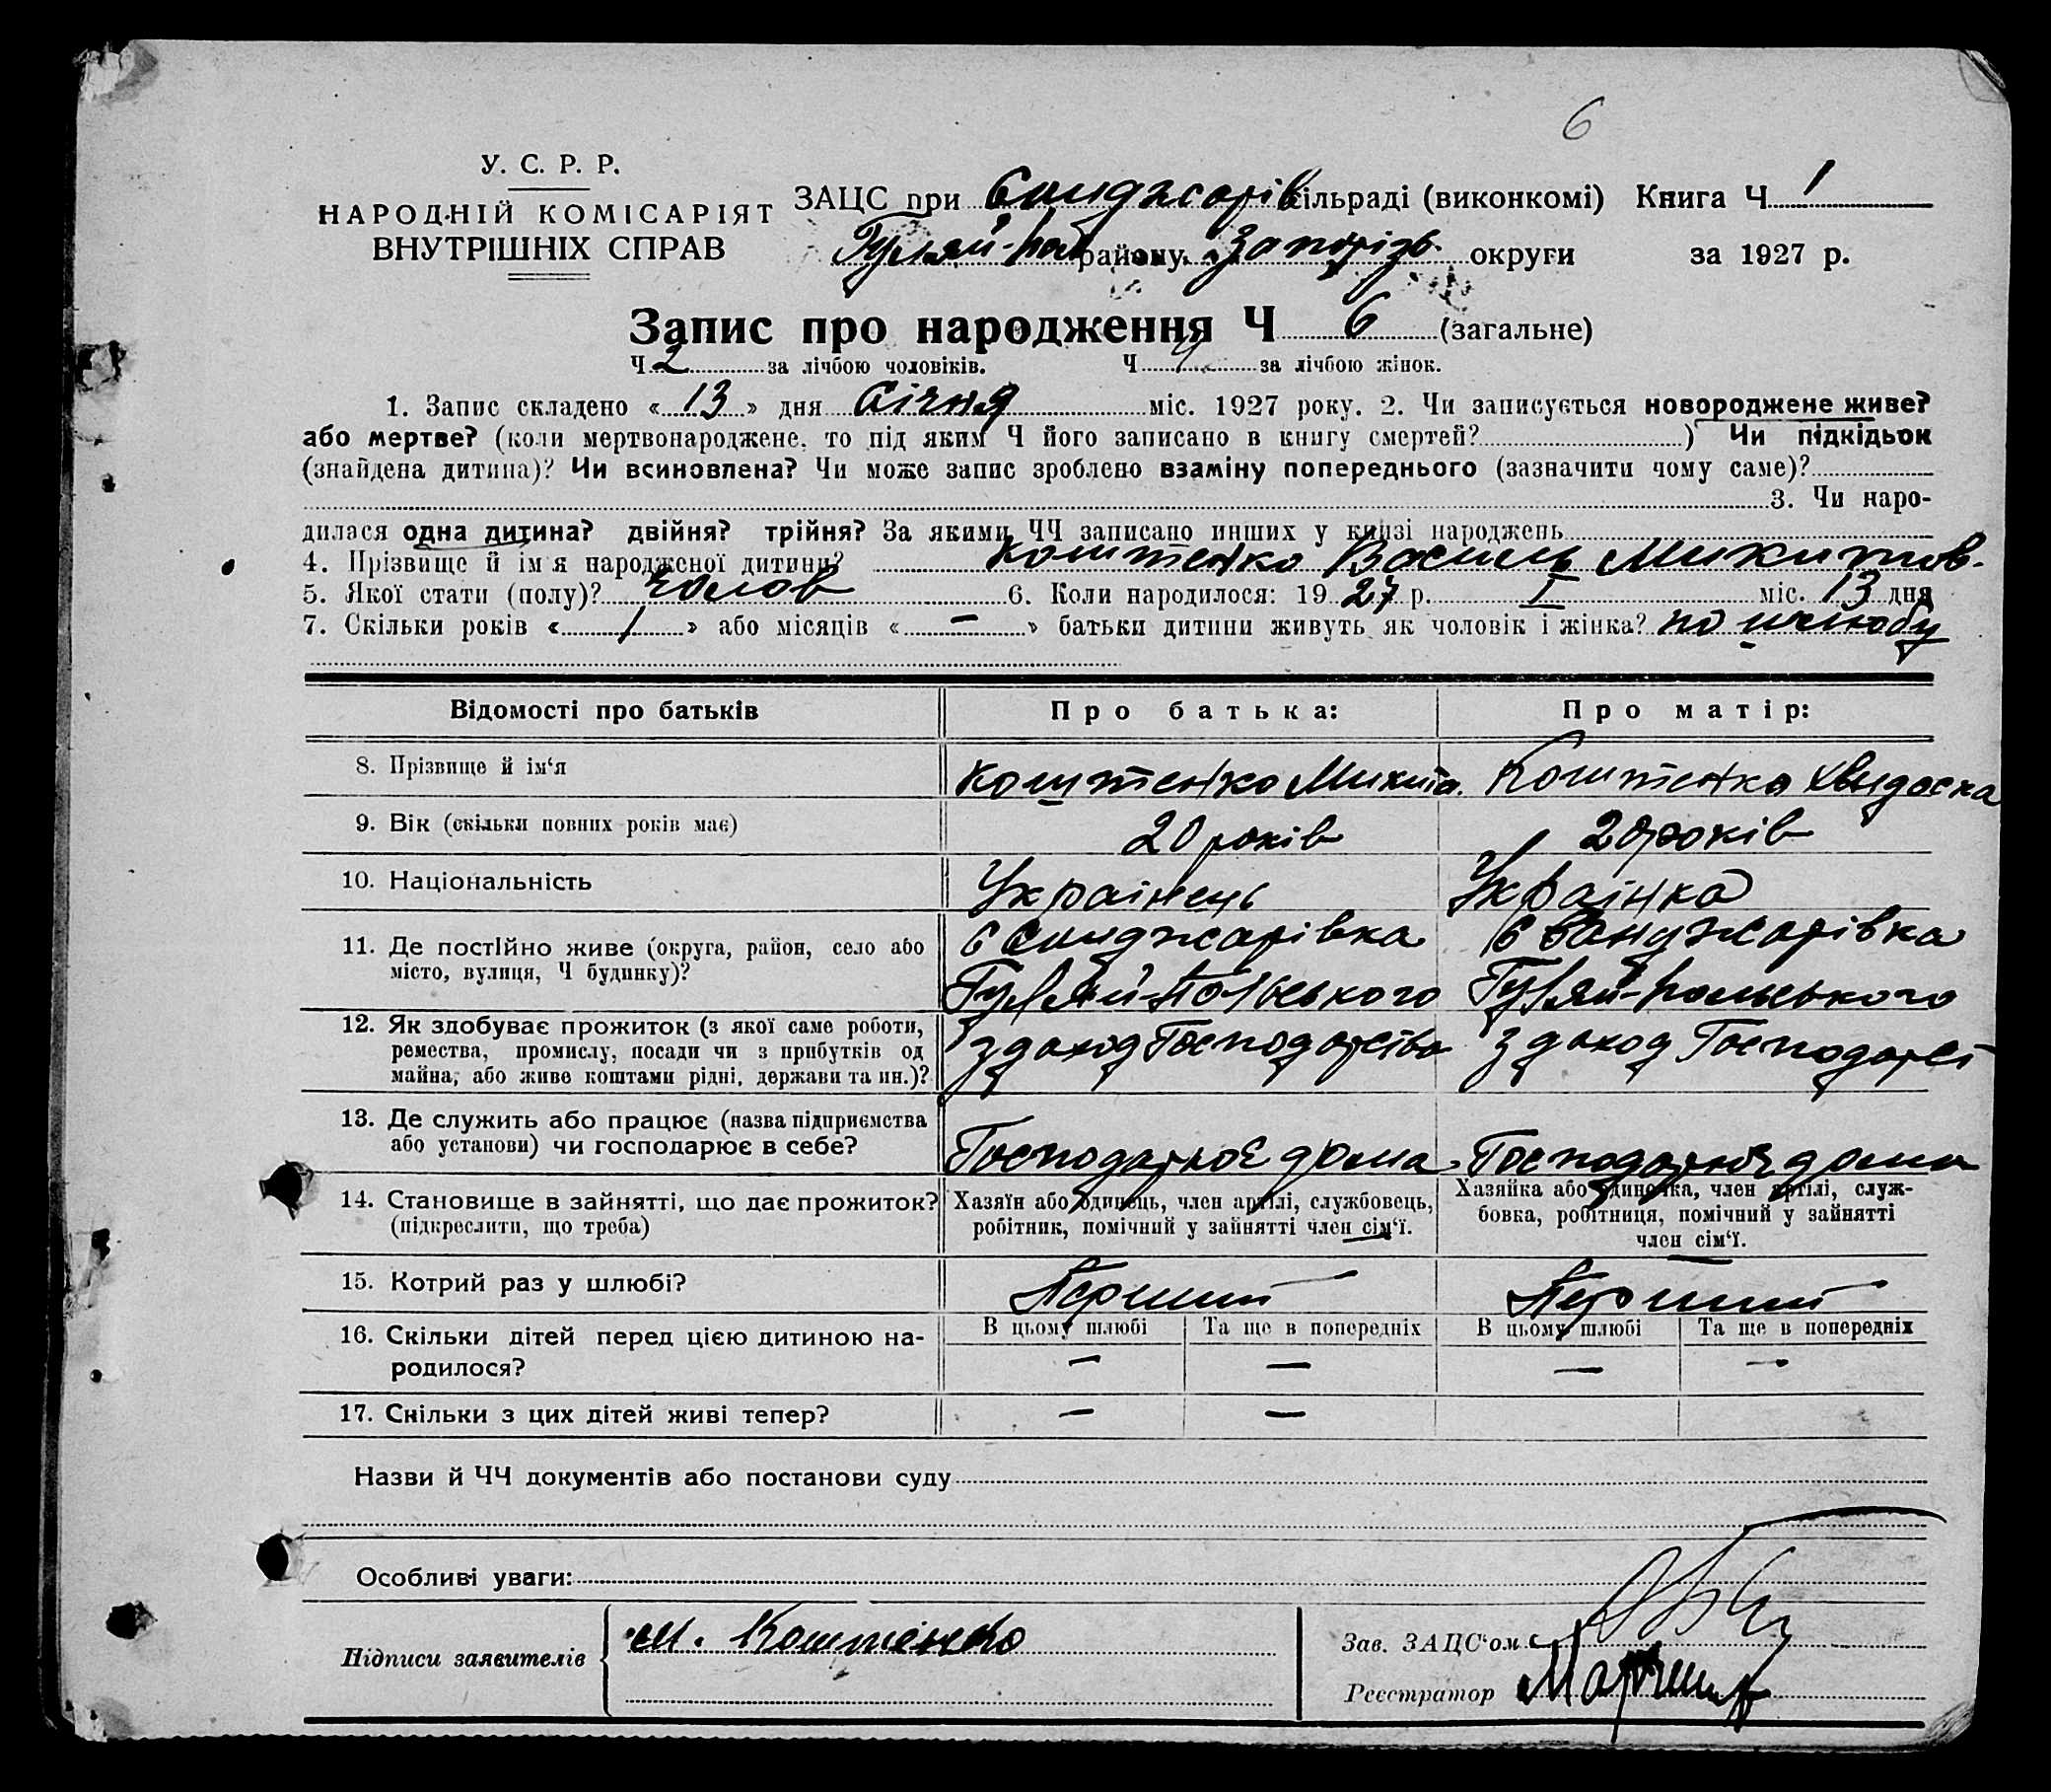 6
У. С. Р. Р.
НАРОДНІЙ КОМІСАРІЯТ
ВНУТРІШНІХ СПРАВ
ЗАЦС при Санджарів сільраді (виконкомі) Книга Ч 1
Гуляй-пол району Запоріз. округи за 1927 р.
Запис про народження Ч 6 (загальне)
Ч 2 за лічбою чоловіків. Ч за лічбою жінок.
1. Запис складено « 13 » дня Січня міс. 1927 року. 2. Чи записується новороджене живе?
або мертве? (коли мертвонароджене, то під яким Ч його записано в книгу смертей? ) Чи підкідьок
(знайдена дитина)? Чи всиновлена? Чи може запис зроблено взаміну попереднього (зазначити чому саме)?
3. Чи наро-
дилася одна дитина? двійня? трійня? За якими ЧЧ записано инших у книзі народжень
4. Прізвище й імя народженої дитини? Коштенко Василь Микитов.
5. Якої стати (полу)? Чолов 6. Коли народилося: 19 27 р. I міс. 13 дня
7. Скільки років « 1 » або місяців « — » батьки дитини живуть як чоловік і жінка? по шлюбу
Відомості про батьків Про батька: Про матір:
8. Прізвище й ім‘я Коштенко Микита. Коштенко Хвидоска
9. Вік (скільки повних років має) 20 років 20 років
10. Національність Украінець Украінка
11. Де постійно живе (округа, район, село або С Санджарівка С Санджарівка
місто, вулиця, Ч будинку)? Гуляй-Польського Гуляй-польського
12. Як здобуває прожиток (з якої саме роботи, З доход Господарства З доход Господарст
ремества, промислу, посади чи з прибутків од
майна, або живе коштами рідні, держави та ин.)?
13. Де служить або працює (назва підприємства
або установи) чи господарює в себе? Господарює дома Господарює дома
14. Становище в зайнятті, що дає прожиток? Хазяїн або одинець, член артілі, службовець, Хазяйка або одиночка, член артілі, служ-
(підкреслити, що треба) робітник, помічний у зайнятті член сім‘ї. бовка, робітниця, помічний у зайнятті
член сім‘ї.
15. Котрий раз у шлюбі? Перший Перший
16. Скільки дітей перед цією дитиною на- В цьому шлюбі Та ще в попередніх В цьому шлюбі Та ще в попередніх
родилося? — — — —
17. Скільки з цих дітей живі тепер? — —
Назви й ЧЧ документів або постанови суду
Особливі уваги:
Підписи заявителів М. Коштенко
Зав. ЗАЦС‘ом
Реєстратор